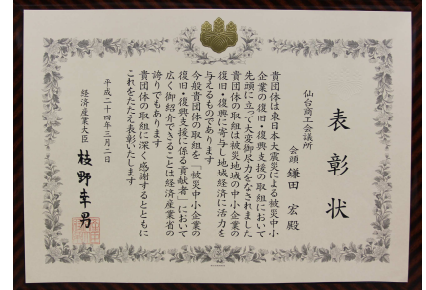 表彰状
仙台商工会議所
会頭 鎌田 宏 殿
貴団体は東日本大震災による被災中小
企業の復旧・復興支援の取組において
先頭に立って大変御尽力をなされました
貴団体の取組は被災地域の中小企業の
復旧・復興に寄与し地域経済に活力を
与えるものであります
今般貴団体の取組を「被災中小企業の
復旧・復興支援に係る貢献者」において
広く御紹介できることは経済産業省の
誇りでもあります
貴団体の取組に深く感謝するとともに
これをたたえ表彰いたします
平成二十四年三月二日
経済産業大臣 枝野幸男